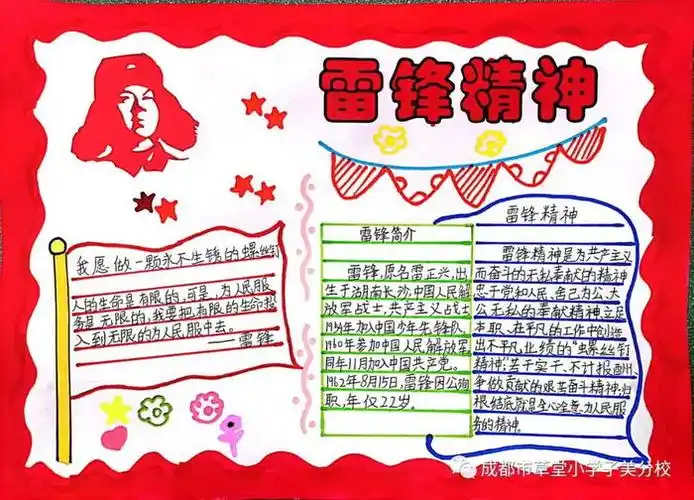 雷锋精神
我愿做一颗永不生锈的螺丝钉
人的生命是有限的,可是,为人民服
务是无限的,我要把有限的生命投
入到无限的为人民服中去。
——雷锋
雷锋简介
雷锋,原名雷正兴,出
生于湖南长沙,中国人民解
放军战士,共产主义战士
1954年加入中国少年先锋队,
1960年参加中国人民解放军
同年11月加入中国共产党。
1962年8月15日,雷锋因公殉
职,年仅22岁。
雷锋精神
雷锋精神是为共产主义
而奋斗的无私奉献的精神
忠于党和人民、舍己为公、大
公无私的奉献精神立足
本职、在平凡的工作中创造
出不平凡业绩的“螺丝钉
精神”,苦干实干、不计报酬、
争做贡献的艰苦奋斗精神,归
根结底就是全心全意为人民服
务的精神。
成都市草堂小学子美分校